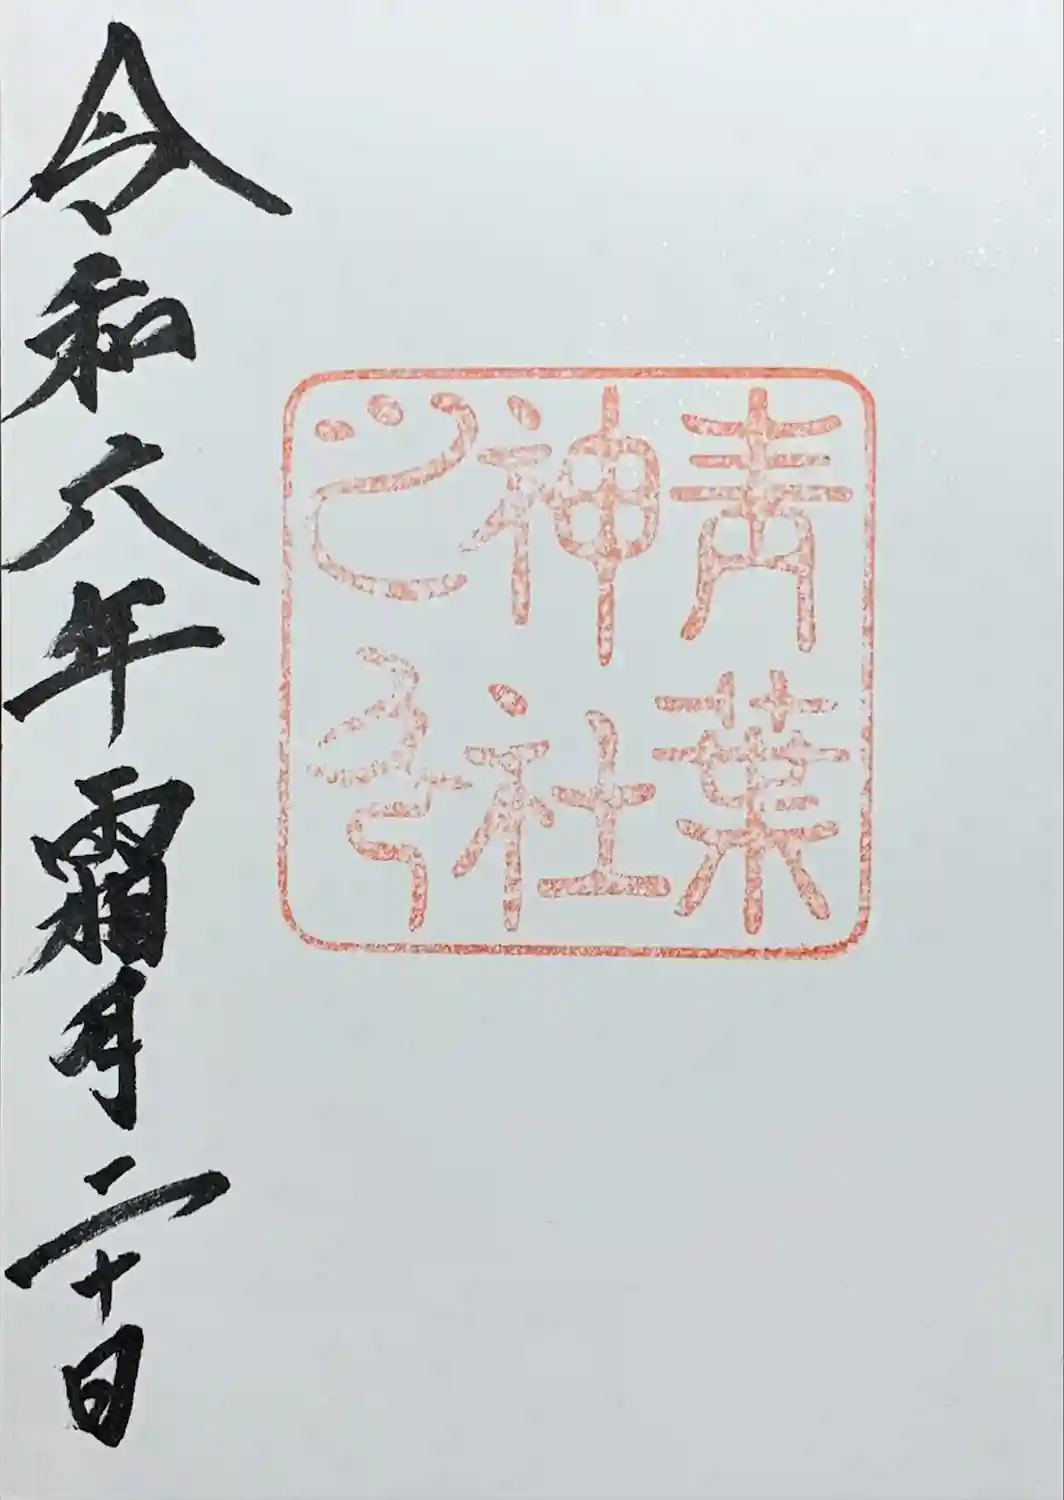 青葉
神社
之印
令和六年霜月二十日